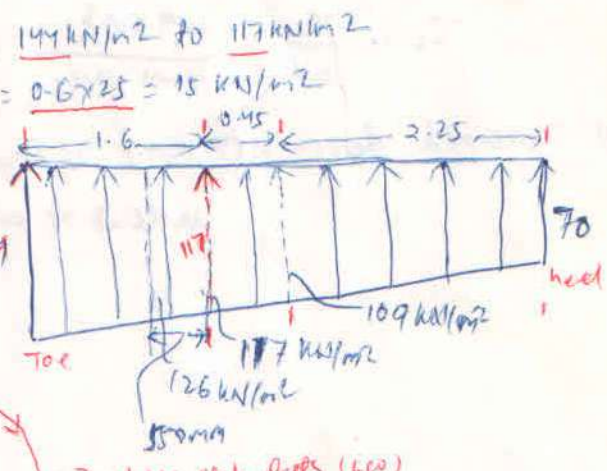 144 kN/m2 to 117 kN/m2
= 0.6x25 = 15 kN/m2
0.45
1.6 2.25
117
70
heel
109 kN/m2
Toe
117 kN/m2
126 kN/m2
550mm